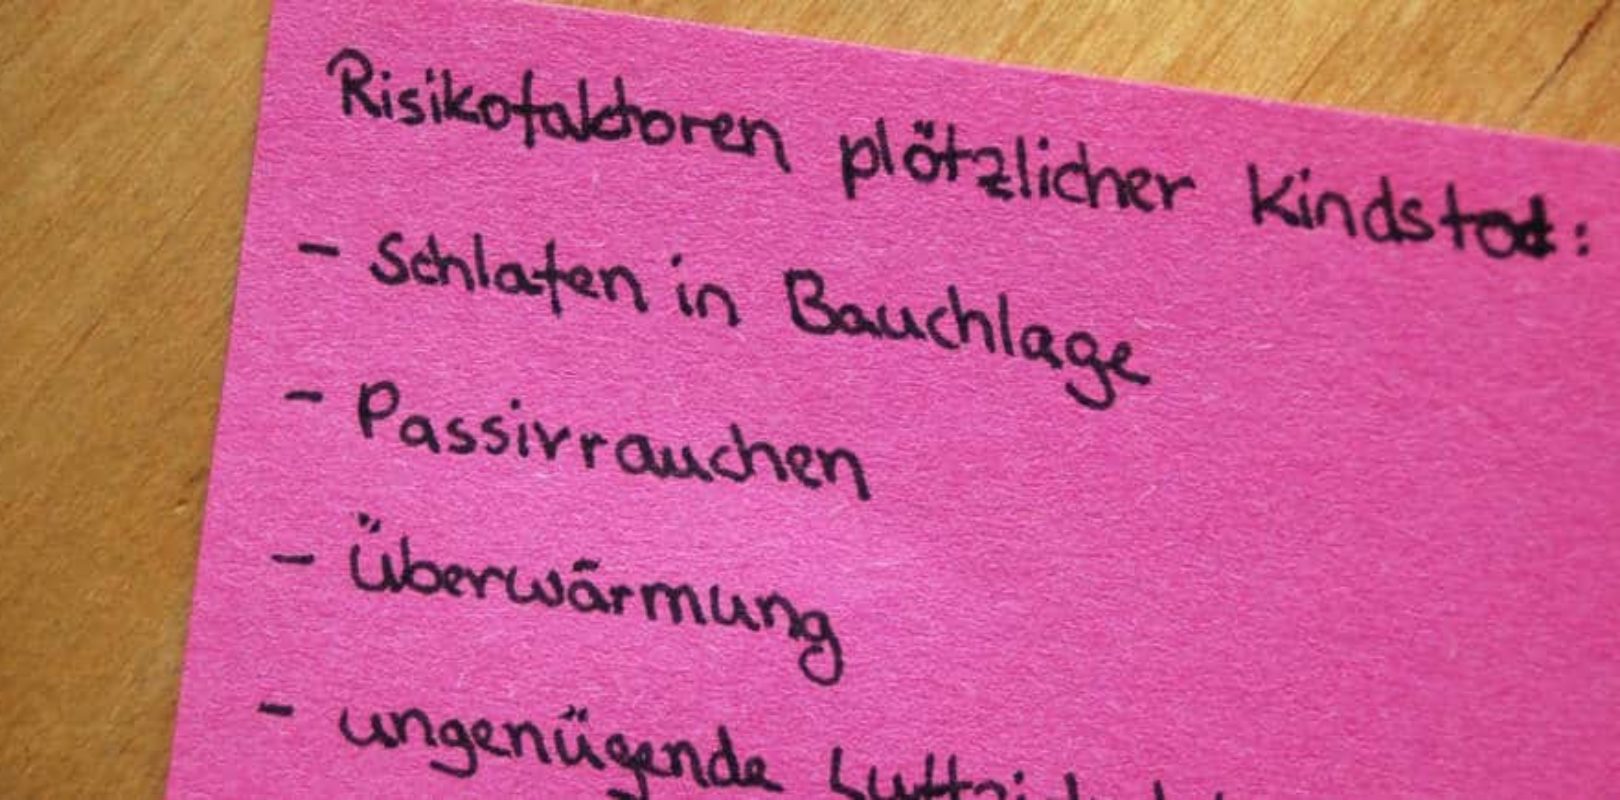 Risikofaktoren plötzlicher Kindstod:
- Schlafen in Bauchlage
- Passivrauchen
- Überwärmung
- ungenügende